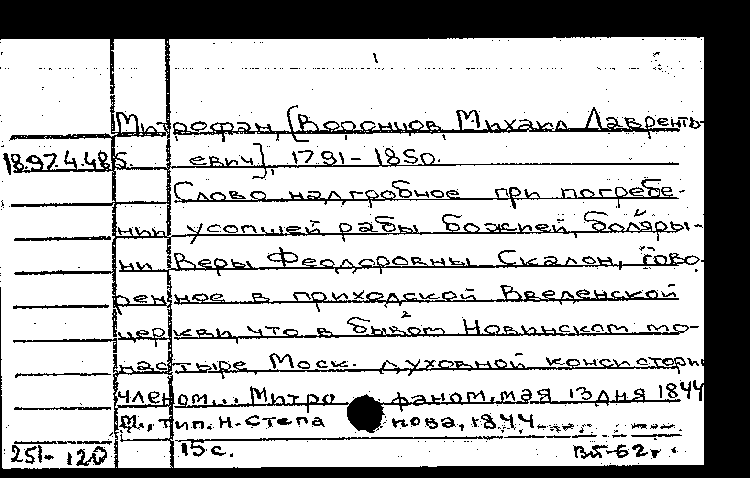 1
Митрофан, [Воронцов, Михаил Лавренть-
18.97.4.485. евич], 1791-1850.
Слово надгробное при погребе-
нии усопшей рабы божией, боляры-
ни Веры Феодоровны Скалон, гово-
ренное в приходской Введенской
церкви, что в бывшем Новинском мо-
настыре, Моск. духовной консистории
членом... Митрофаном, мая 13 дня 1844
М., тип. Н. Степанова, 1844.
251-120 15 с.